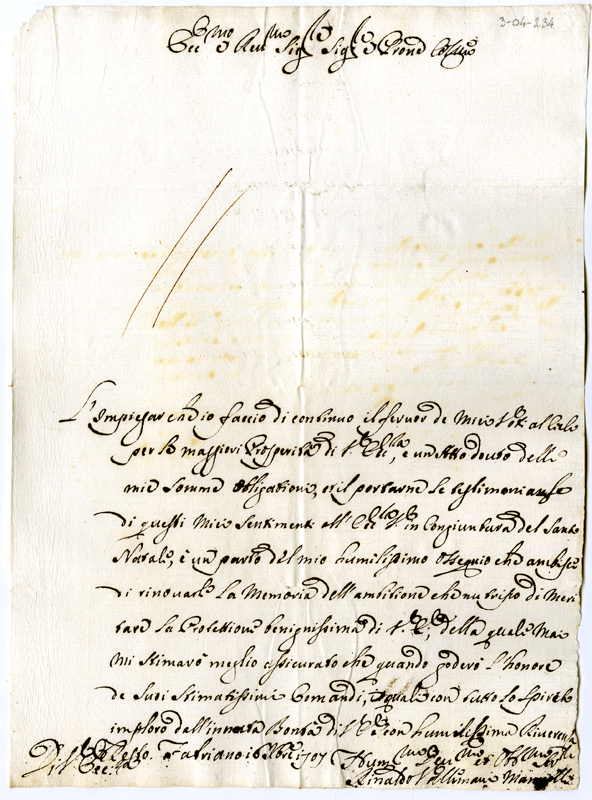 3-04-234
Ecc.mo e Rev.mo Sig.re Sig.re e Pron.e Col.mo
L'impiegar ch'io faccio di continuo il fervor de Miei Voti al Cielo
per le maggiori Prosperità di V. Ecc.lla, è un Atto dovuto delle
mie somme obligationi, et il portarne le testimonianze
di questi Miei Sentimenti all' in Congiuntura del Santo
Natale, è un parto del mio humilissimo ossequio che ambisce
di rinovarle La Memoria dell'ambitione che nutrisco di Meri
tare La Protettione benignissima di V. E.; della quale Mai
Mi stimarò meglio assicurato che quando poderò l'honore
de Suoi Stimatissimi Comandi, quali con tutto lo Spirito
imploro dall'innata Bontà di V. E. con humilissima Riverenza
Fabriano 16 Xbre 1707
Di V. Ecc.za Hum.mo Dev.mo et Obl.mo
Rinaldo